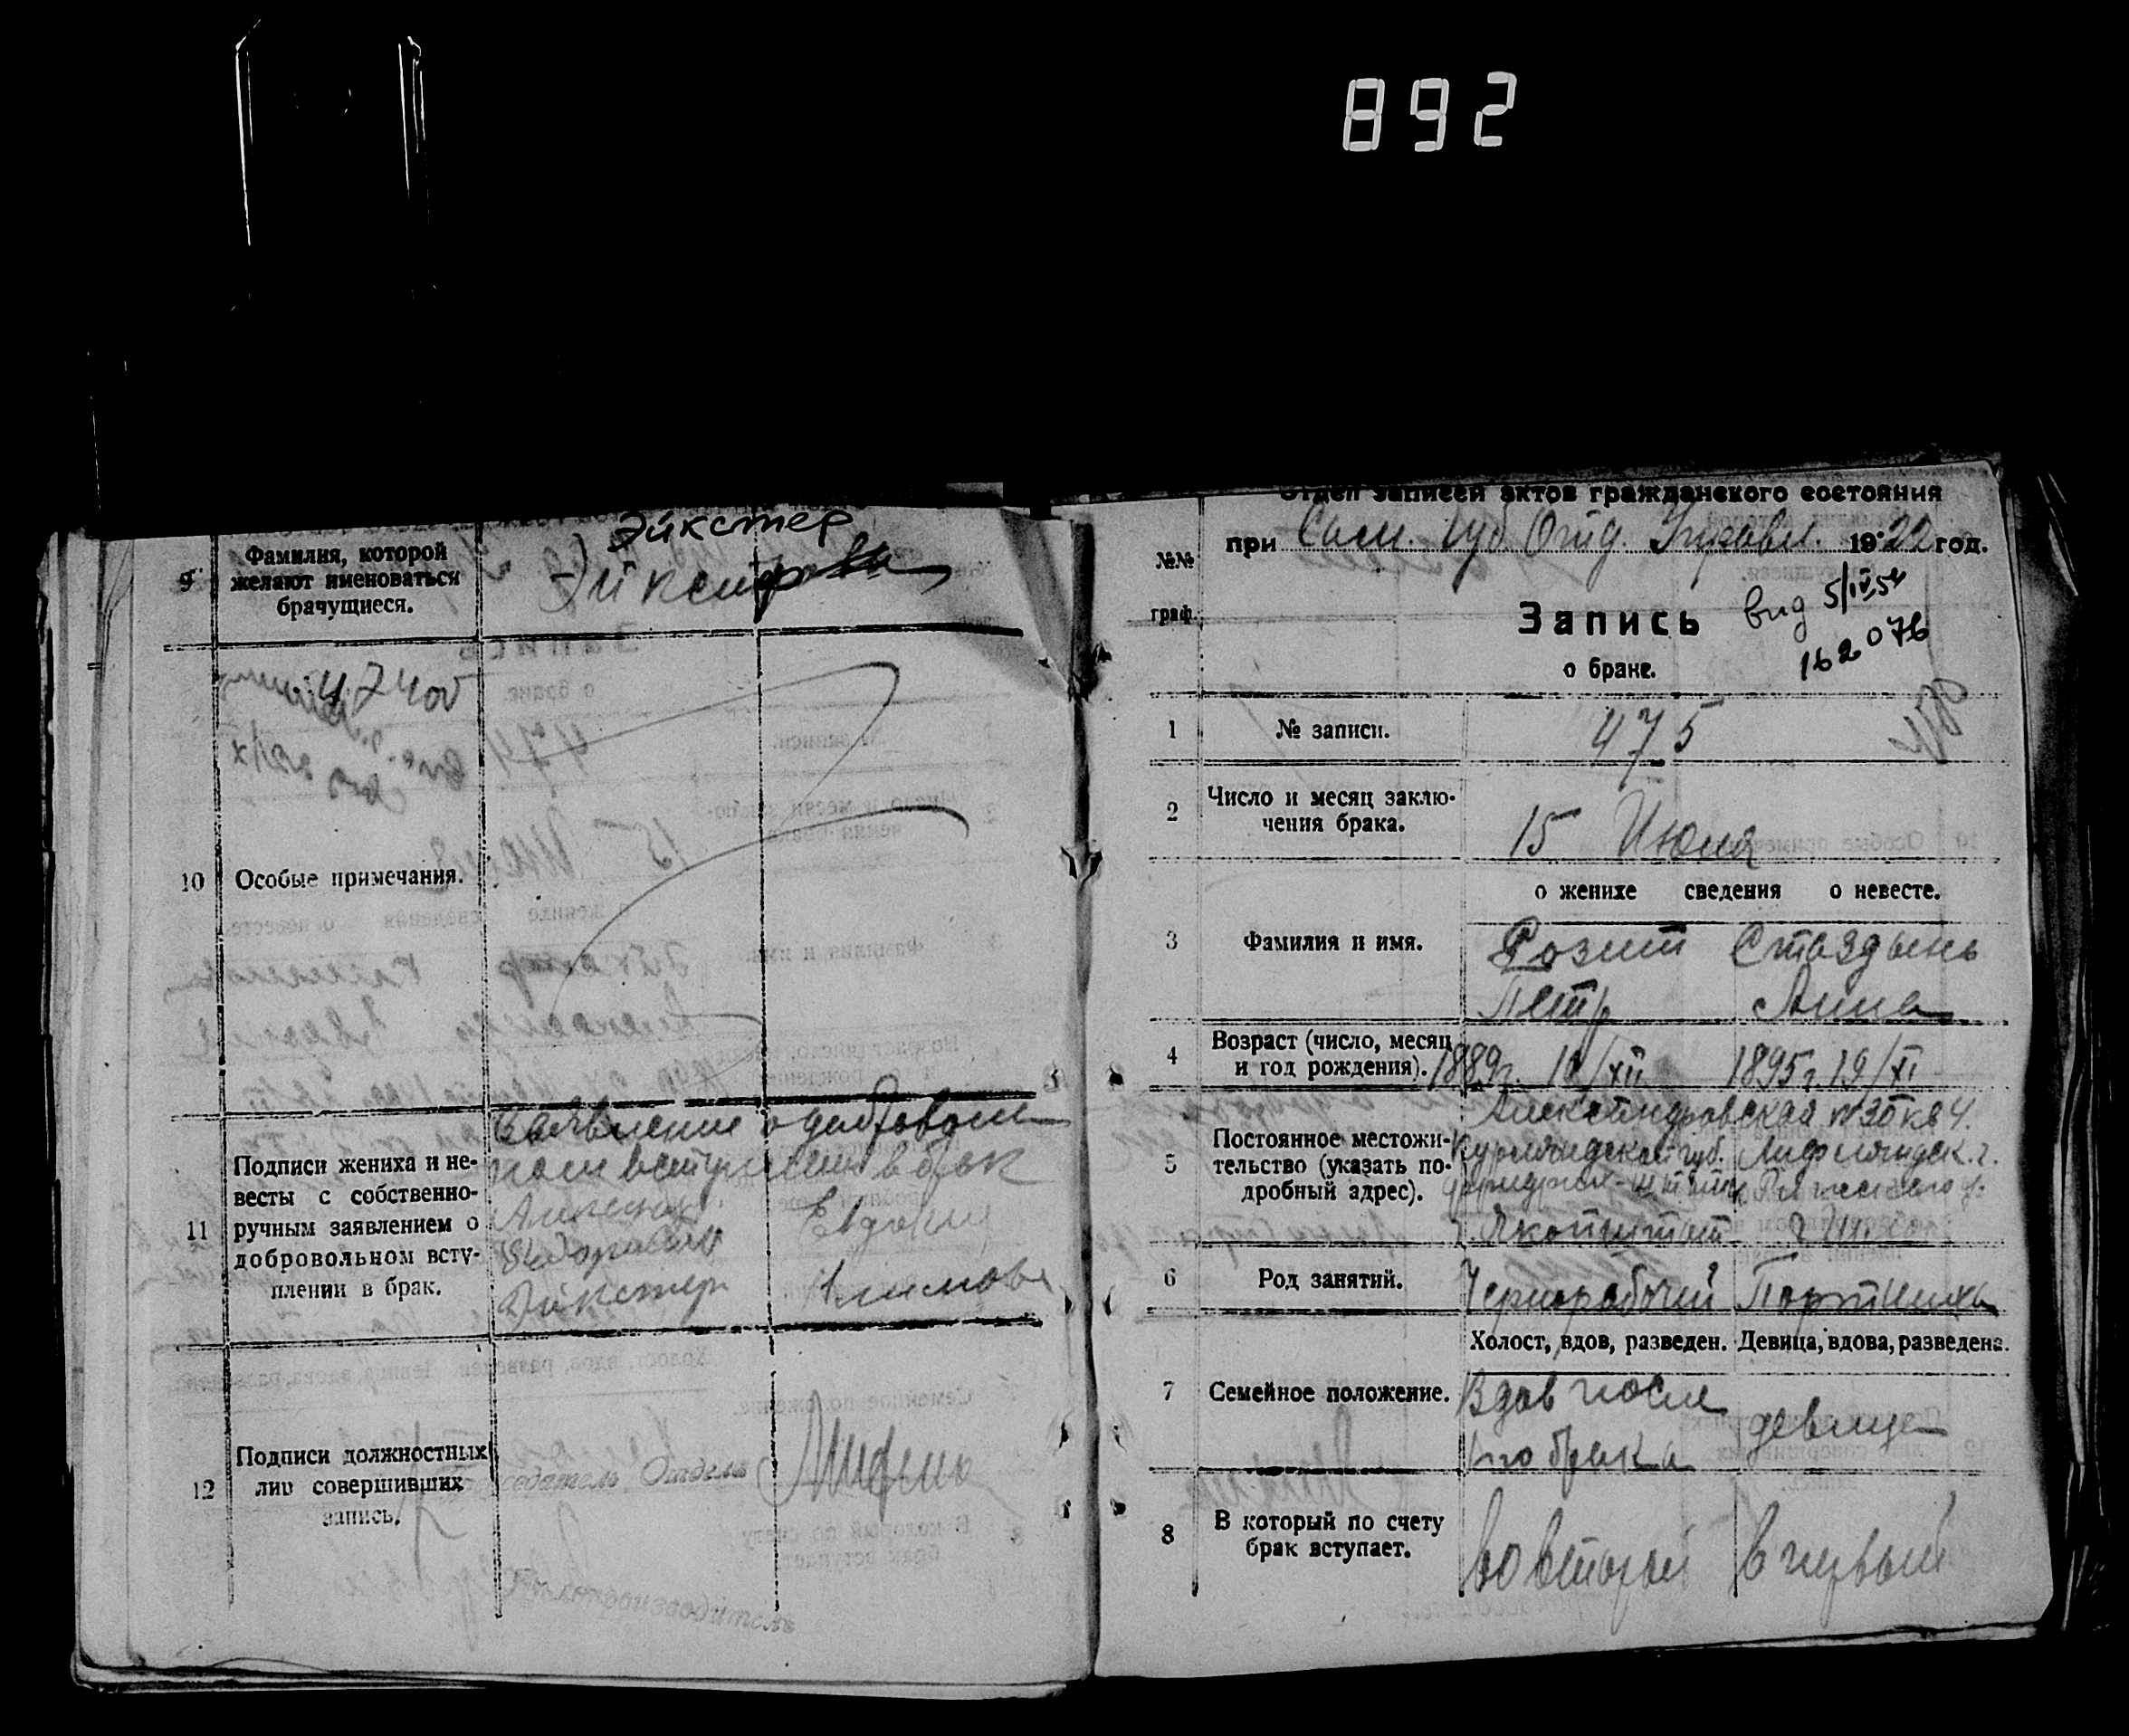 892
9
Фамилия, которой
желают именоваться
брачущиеся.
Эйкстер
10
Особые примечания.
11
Подписи жениха и не-
весты с собственно-
ручным заявлением о
добровольном всту-
плении в брак.
Заявление о доброволь
ном вступлении в брак
Эйкстер
12
Подписи должностных
лиц совершивших
запись.
Отдела
Делопроизводитель
Отдел записей актов гражданского состояния
№№
граф.
при Сам. Губ. Отд. Управл. 1922 год.
Запись
о браке.
5/IV 54
162076
1
№ записи.
475
2
Число и месяц заклю-
чения брака.
15 Июня
о женихе сведения о невесте.
3
Фамилия и имя.
Розит
Петр
Стаздынь
Анна
4
Возраст (число, месяц
и год рождения).
1895 г. 19/XI
5
Постоянное местожи-
тельство (указать по-
дробный адрес).
Александровская №30 кв 4.
Курляндская губ.
Лифляндск. г.
Рижского у.
6
Род занятий.
Чернорабочий
Портниха
Холост, вдов, разведен. Девица, вдова, разведена.
7
Семейное положение.
Вдов после
1го брака
девица
8
В который по счету
брак вступает.
во второй
в первый